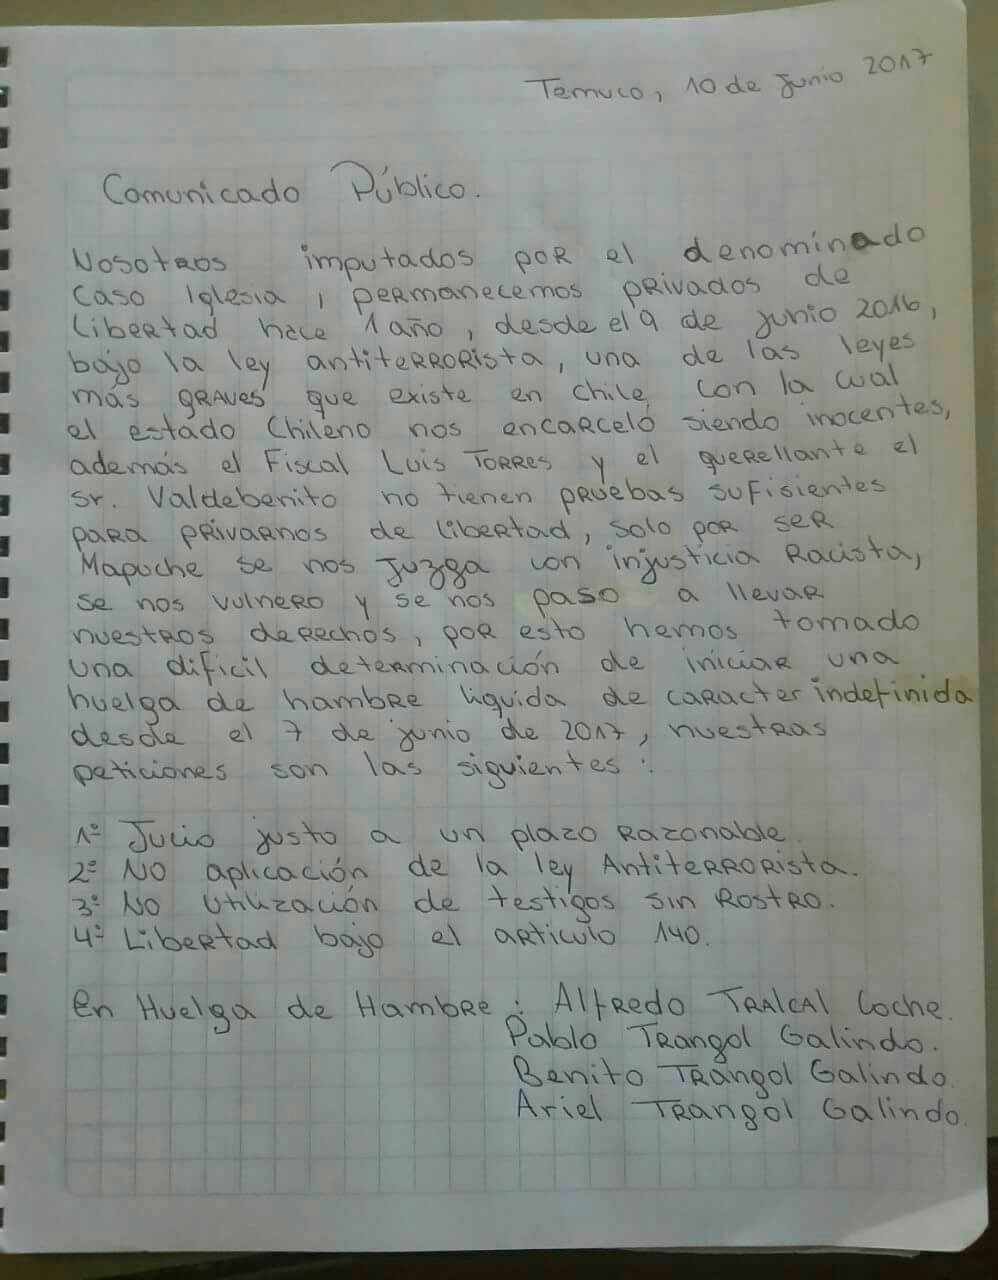 Temuco, 10 de Junio 2017
Comunicado Público.
Nosotros imputados por el denominado
Caso Iglesia, permanecemos privados de
Libertad hace 1 año, desde el 9 de junio 2016,
bajo la ley antiterrorista, una de las leyes
más graves que existe en Chile con la cual
el estado Chileno nos encarceló siendo inocentes,
además el Fiscal Luis Torres y el querellante el
Sr. Valdebenito no tienen pruebas sufisientes
para privarnos de libertad, solo por ser
Mapuche se nos Juzga con injusticia Racista,
se nos vulnero y se nos paso a llevar
nuestros derechos, por esto hemos tomado
una dificil determinación de iniciar una
huelga de hambre liquida de caracter indefinida
desde el 7 de junio de 2017, nuestras
peticiones son las siguientes:
1º Jucio justo a un plazo Razonable.
2º No aplicación de la ley Antiterrorista.
3º No utilización de testigos sin Rostro.
4º Libertad bajo el articulo 140.
En Huelga de Hambre: Alfredo Tralcal Coche.
Pablo Trangol Galindo.
Benito Trangol Galindo.
Ariel Trangol Galindo.